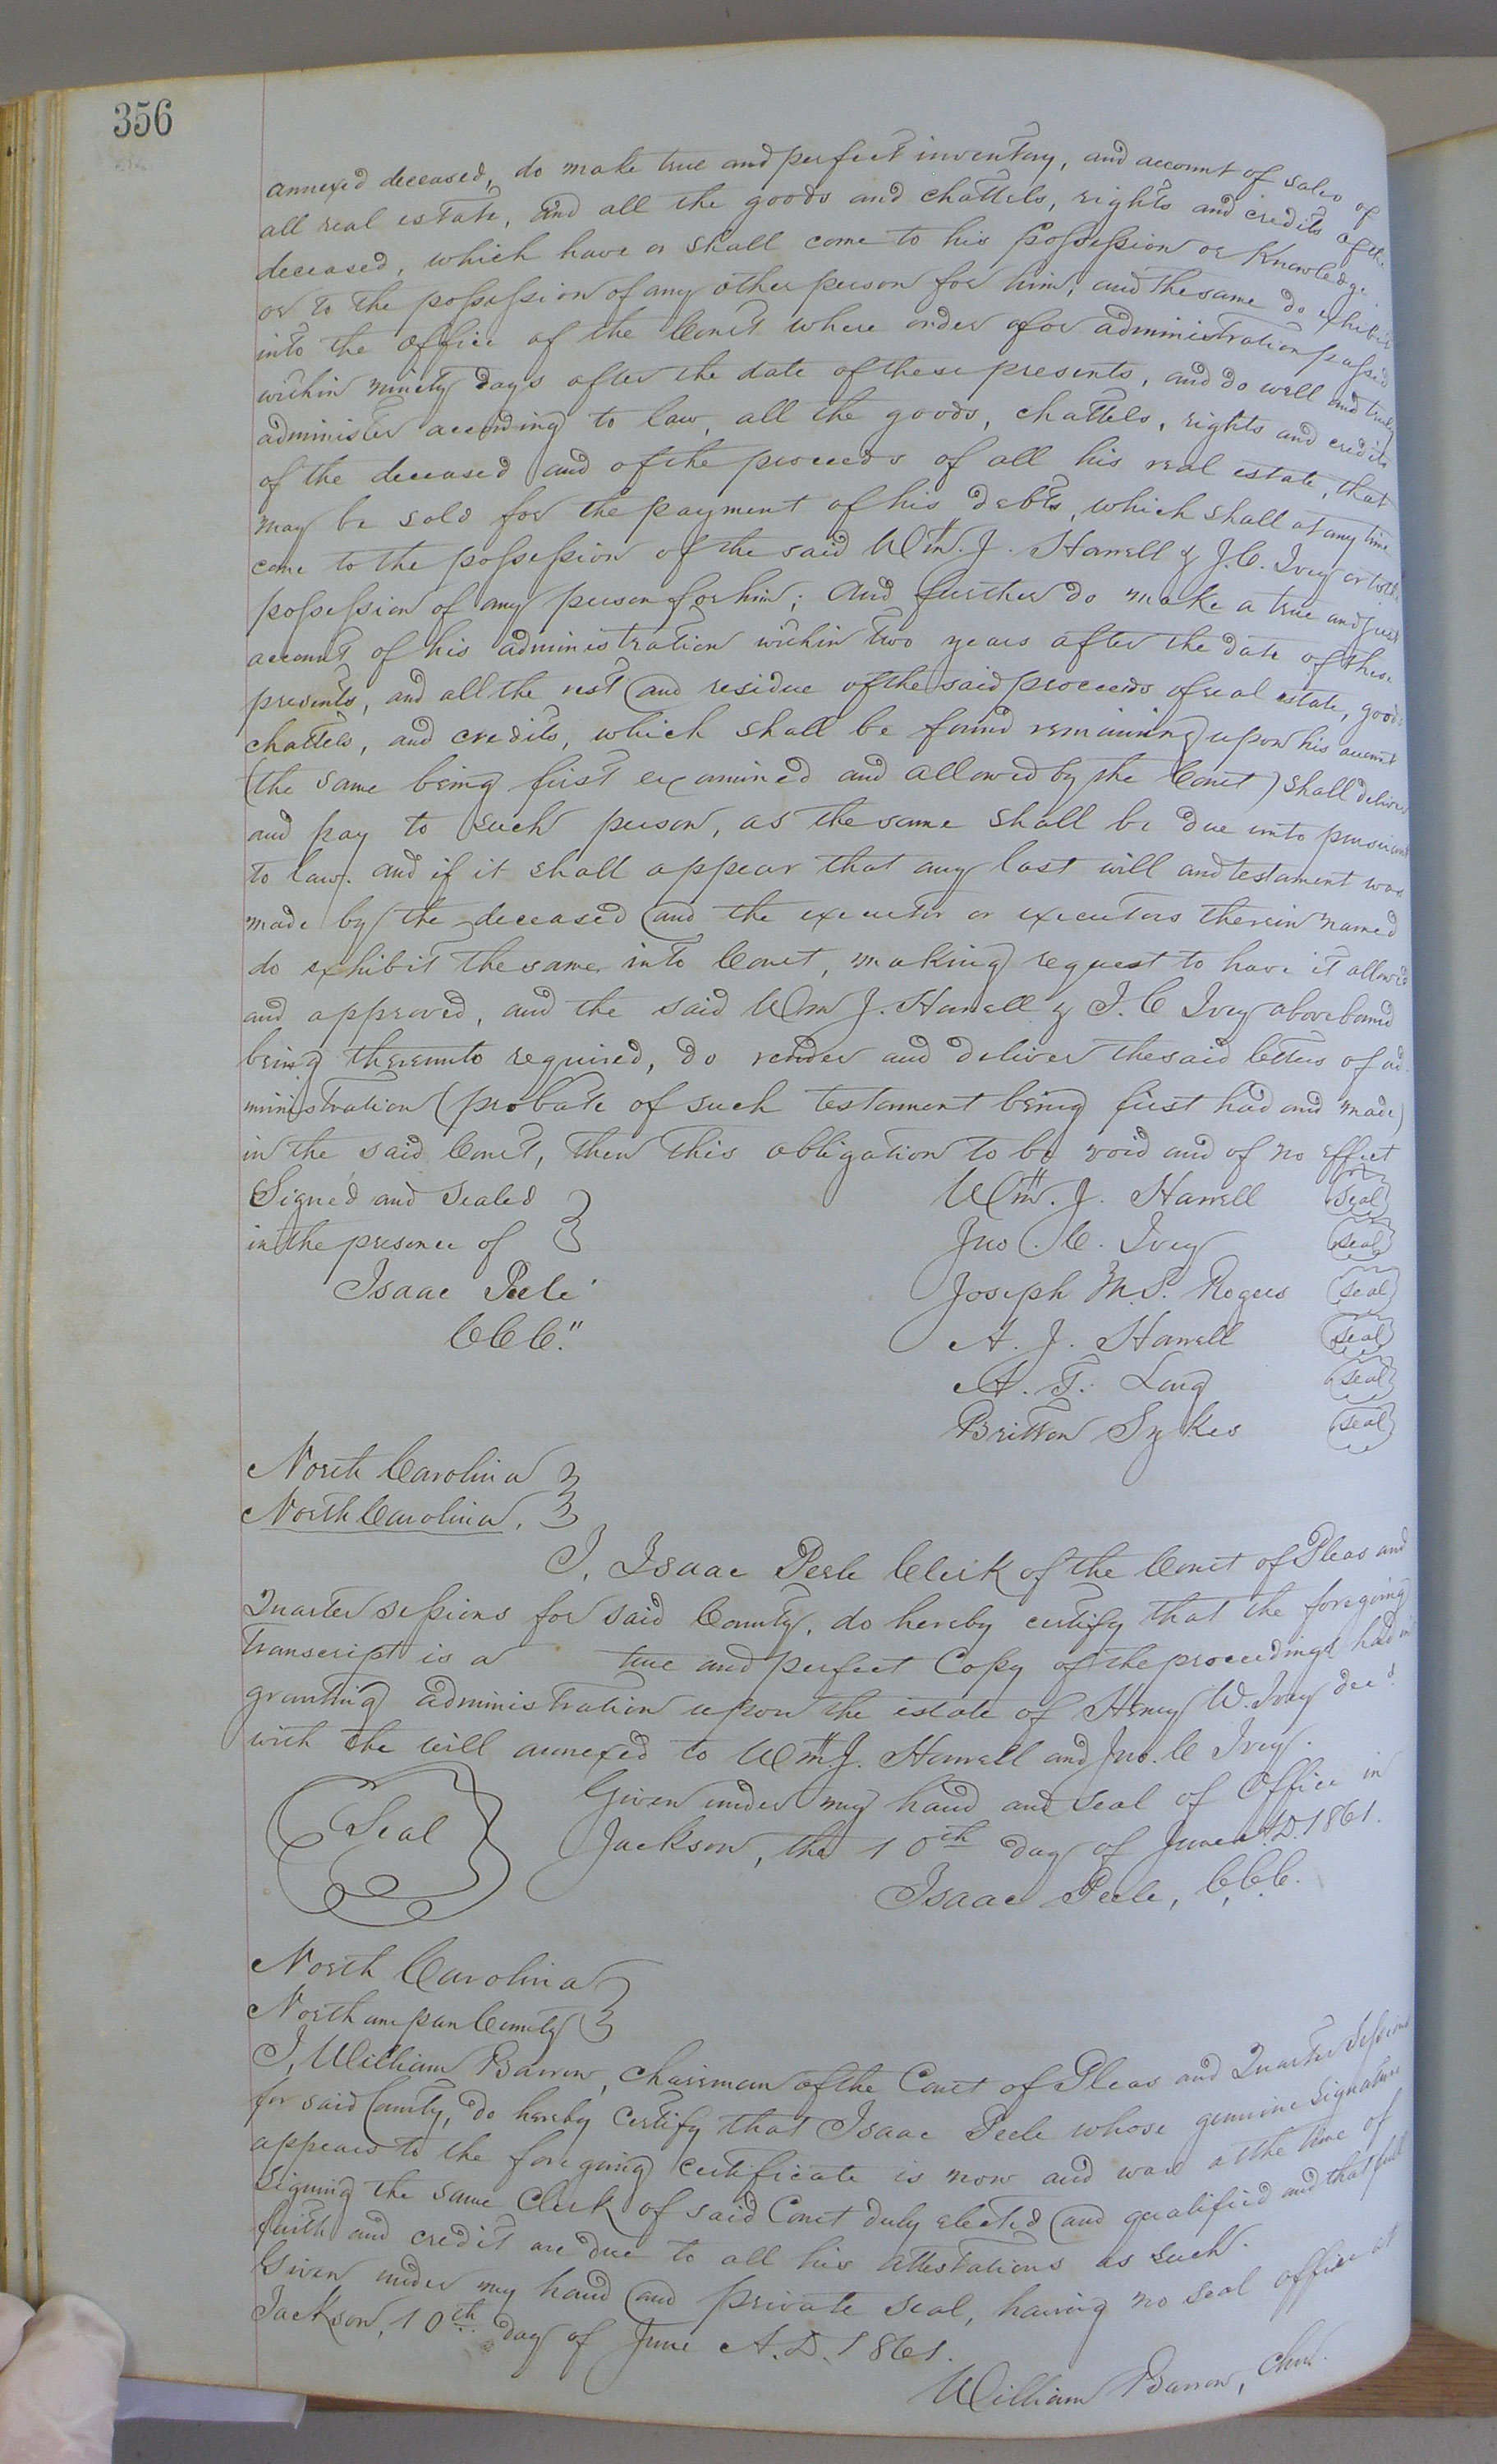 356
annexed deceased, do make true and perfect inventory, and account of sales of
all real estate, and all the goods and chattels, rights and credits of the
deceased, which have or shall come to his possession or Knowledge
or to the possession of any other person for him; and the same do exhibit
into the Office of the Court where order for administration passed
within ninety days after the date of these presents, and do well and truly
administer according to law, all the goods, chattels, rights and credits
of the deceased and of the proceeds of all his real estate, that
may be sold for the payment of his debts, which shall at any time
come to the possession of the said Wm. J. Harrell & J. C. Ivey or to the
possession of any person for him; And further do make a true and just
account of his administration within two years after the date of these
presents, and all the rest and residue of the said proceeds of real estate, goods
chattels, and credits, which shall be found remaining upon his account
(the same being first examined and allowed by the Court) shall deliver
and pay to such person, as the same shall be due unto pursuant
to law. and if it shall appear that any last will and testament was
made by the deceased and the executor or executors therein named
do exhibit the same into Court, making request to have it allowed
and approved, and the said Wm J. Harrell & J. C Ivey above bound
being thereunto required, do render and deliver the said letters of ad
ministration (probate of such testament being first had and made)
in the said Court, then this obligation to be void and of no effect
Signed and Sealed
in the presence of
Isaac Peele
CCC."
Wm. J. Harrell Seal
Jno. C. Ivey Seal
Joseph M. S. Rogers Seal
A. J. Harrell Seal
A. T. Long Seal
Britton Sykes Seal
North Carolina
North Carolina.
I, Isaac Peele Clerk of the Court of Pleas and
Quarter Sessions for said County, do hereby certify that the foregoing
transcript is a true and perfect Copy of the proceedings had in
granting administration upon the estate of Henry W. Ivey decd.
with the will annexed to Wm J. Harrell and Jno. C Ivey.
Seal
Given under my hand and seal of Office in
Jackson, the 10th day of June A.D. 1861.
Isaac Peele, C.C.C.
North Carolina
Northampan County
I, William Barrow, Chairman of the Court of Pleas and Quarter Sessions
for said County, do hereby Certify that Isaac Peele whose genuine signature
appears to the foregoing certificate is now and was at the time of
signing the same Clerk of said Court duly elected and qualified and that full
faith and credit are due to all his attestations as such.
Given under my hand and private seal, having no seal office at
Jackson, 10th day of June A.D. 1861.
William Barrow, Chm.